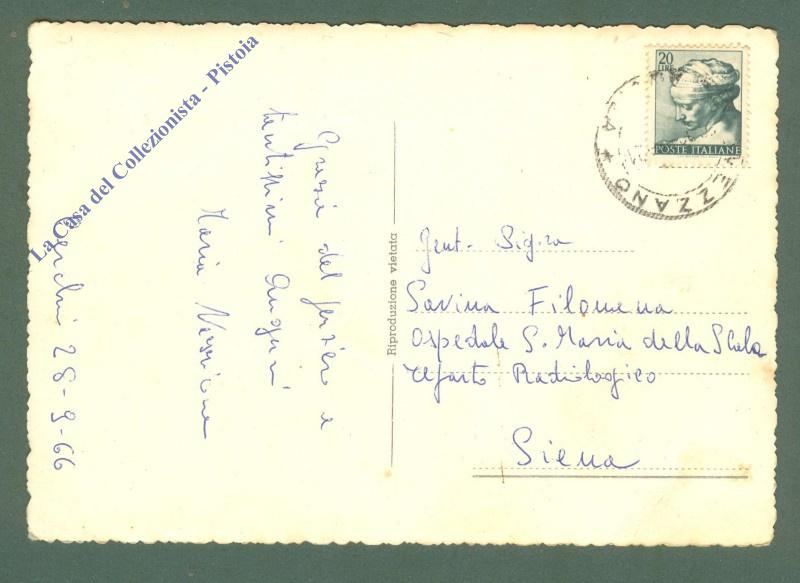 La Casa del Collezionista - Pistoia
20
LIRE
POSTE ITALIANE
EZZANO
Grazie del pensiero e
tantissimi Auguri
Maria
28-9-66
Riproduzione vietata
Gent. Sig.ra
Savina Filomena
Ospedale S. Maria della Scala
reparto Radiologico
Siena